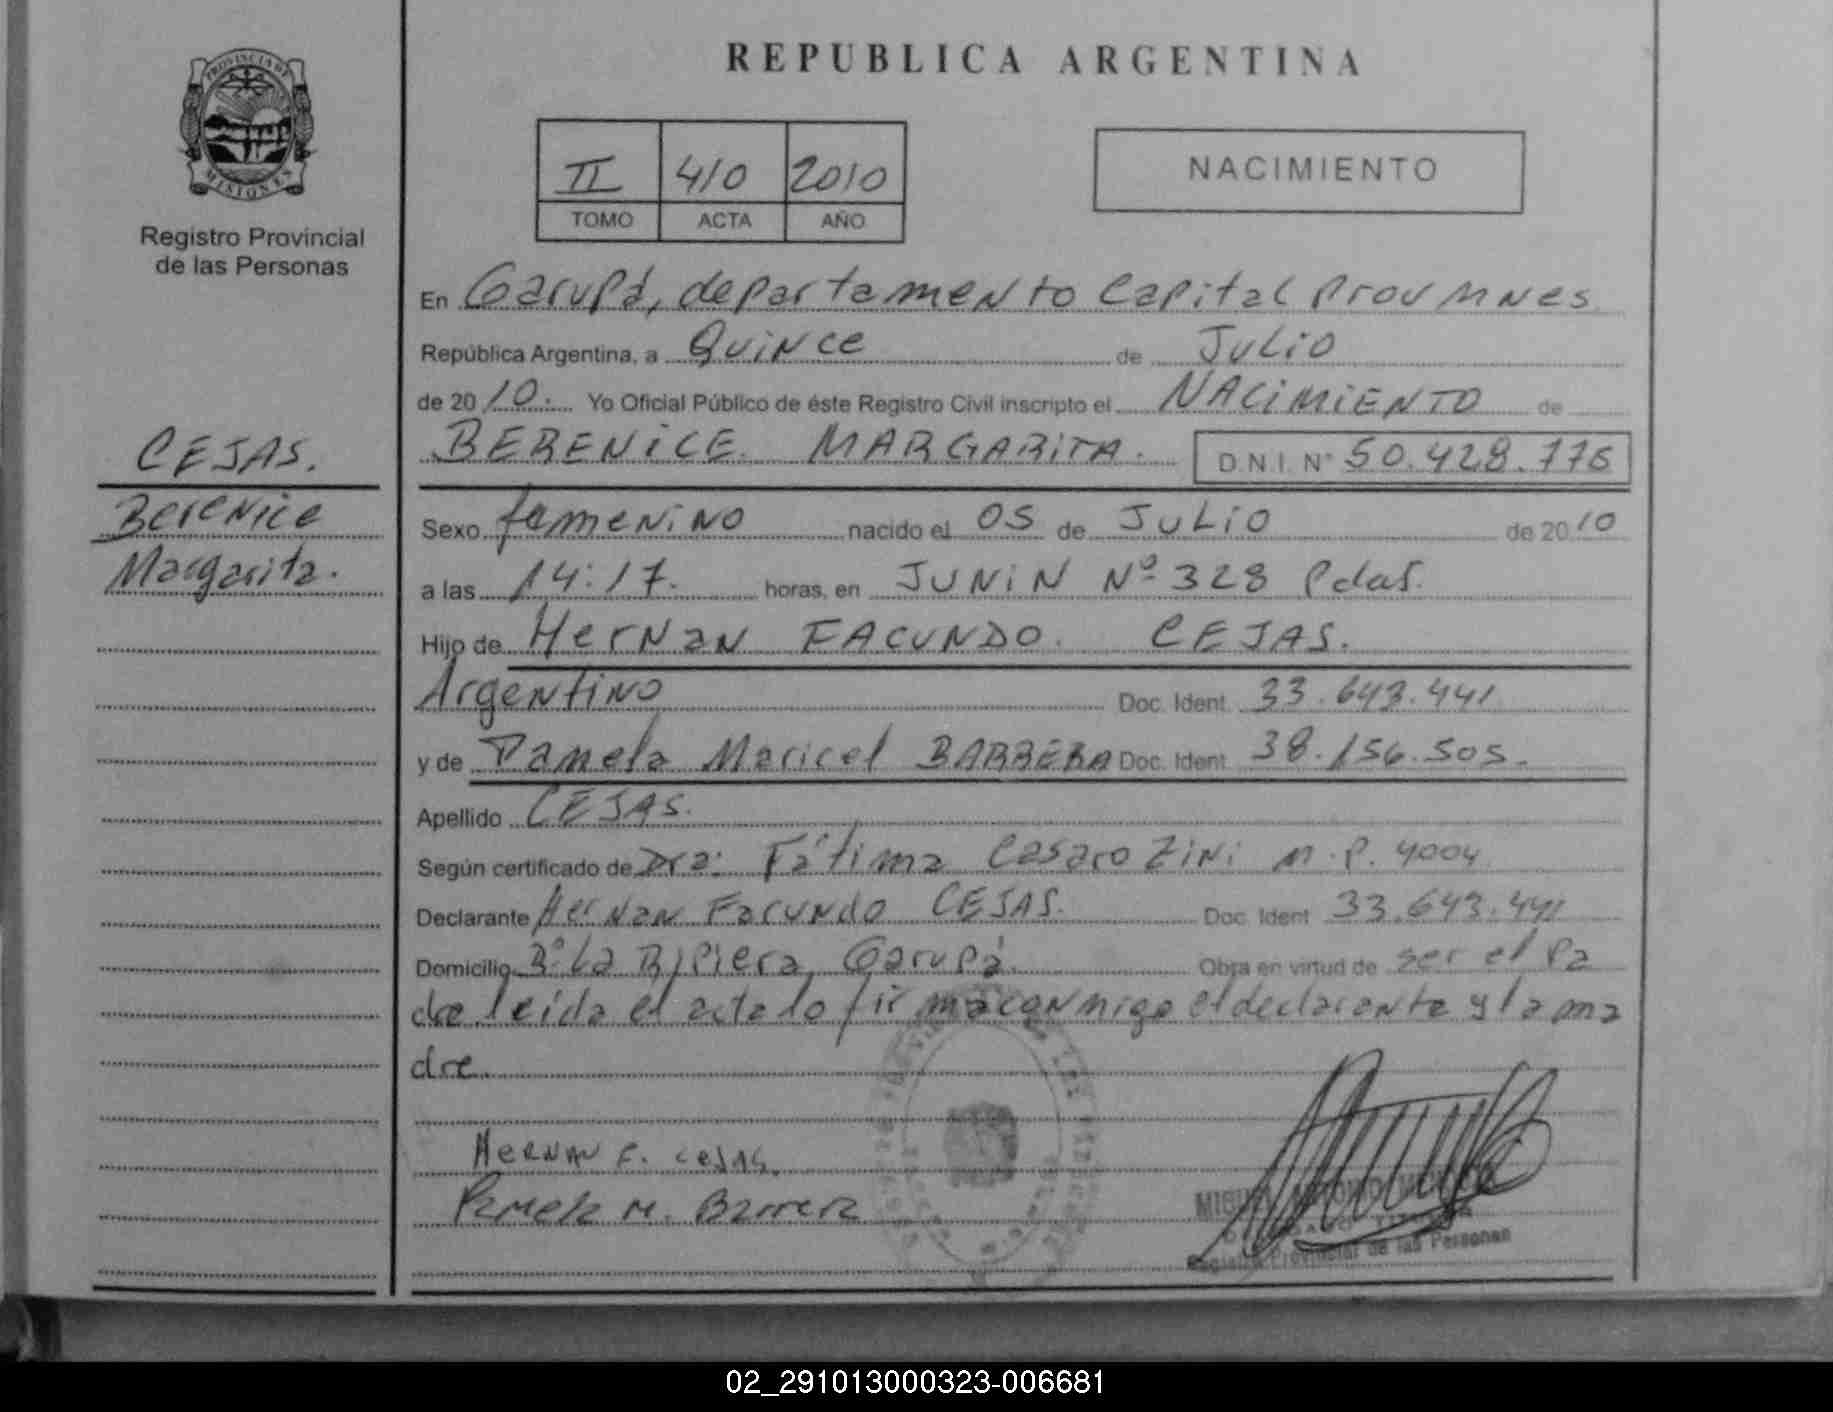 REPUBLICA ARGENTINA
PROVINCIA DE
MISIONES
Registro Provincial
de las Personas
II 410 2010
TOMO ACTA AÑO
NACIMIENTO
En Garupá, departamento Capital Prov Mnes
República Argentina, a Quince de Julio
de 2010. Yo Oficial Público de éste Registro Civil inscripto el NACIMIENTO de
CEJAS.
BERENICE MARGARITA. D.N.I. Nº 50.428.776
Berenice
Margarita.
Sexo femenino nacido el 05 de JULIO de 2010
a las 14:17. horas, en JUNIN Nº 328 Pdas.
Hijo de Hernan FACUNDO CEJAS.
Argentino Doc. Ident. 33.643.441
y de Pamela Maricel BARRERA Doc. Ident. 38.156.505.
Apellido CEJAS.
Según certificado de Dra: Fátima Casaro Zini M.P. 4004
Declarante Hernan Facundo CEJAS. Doc. Ident 33.643.441
Domicilio Bº La Ripiera, Garupá. Obra en virtud de ser el Pa
dre leida el acta lo firma conmigo el declarante y la ma
dre.
HERNAN F. CEJAS.
Pamela M. Barrera
MIGUEL ANTONIO
Registro Provincial de las Personas
02_291013000323-006681